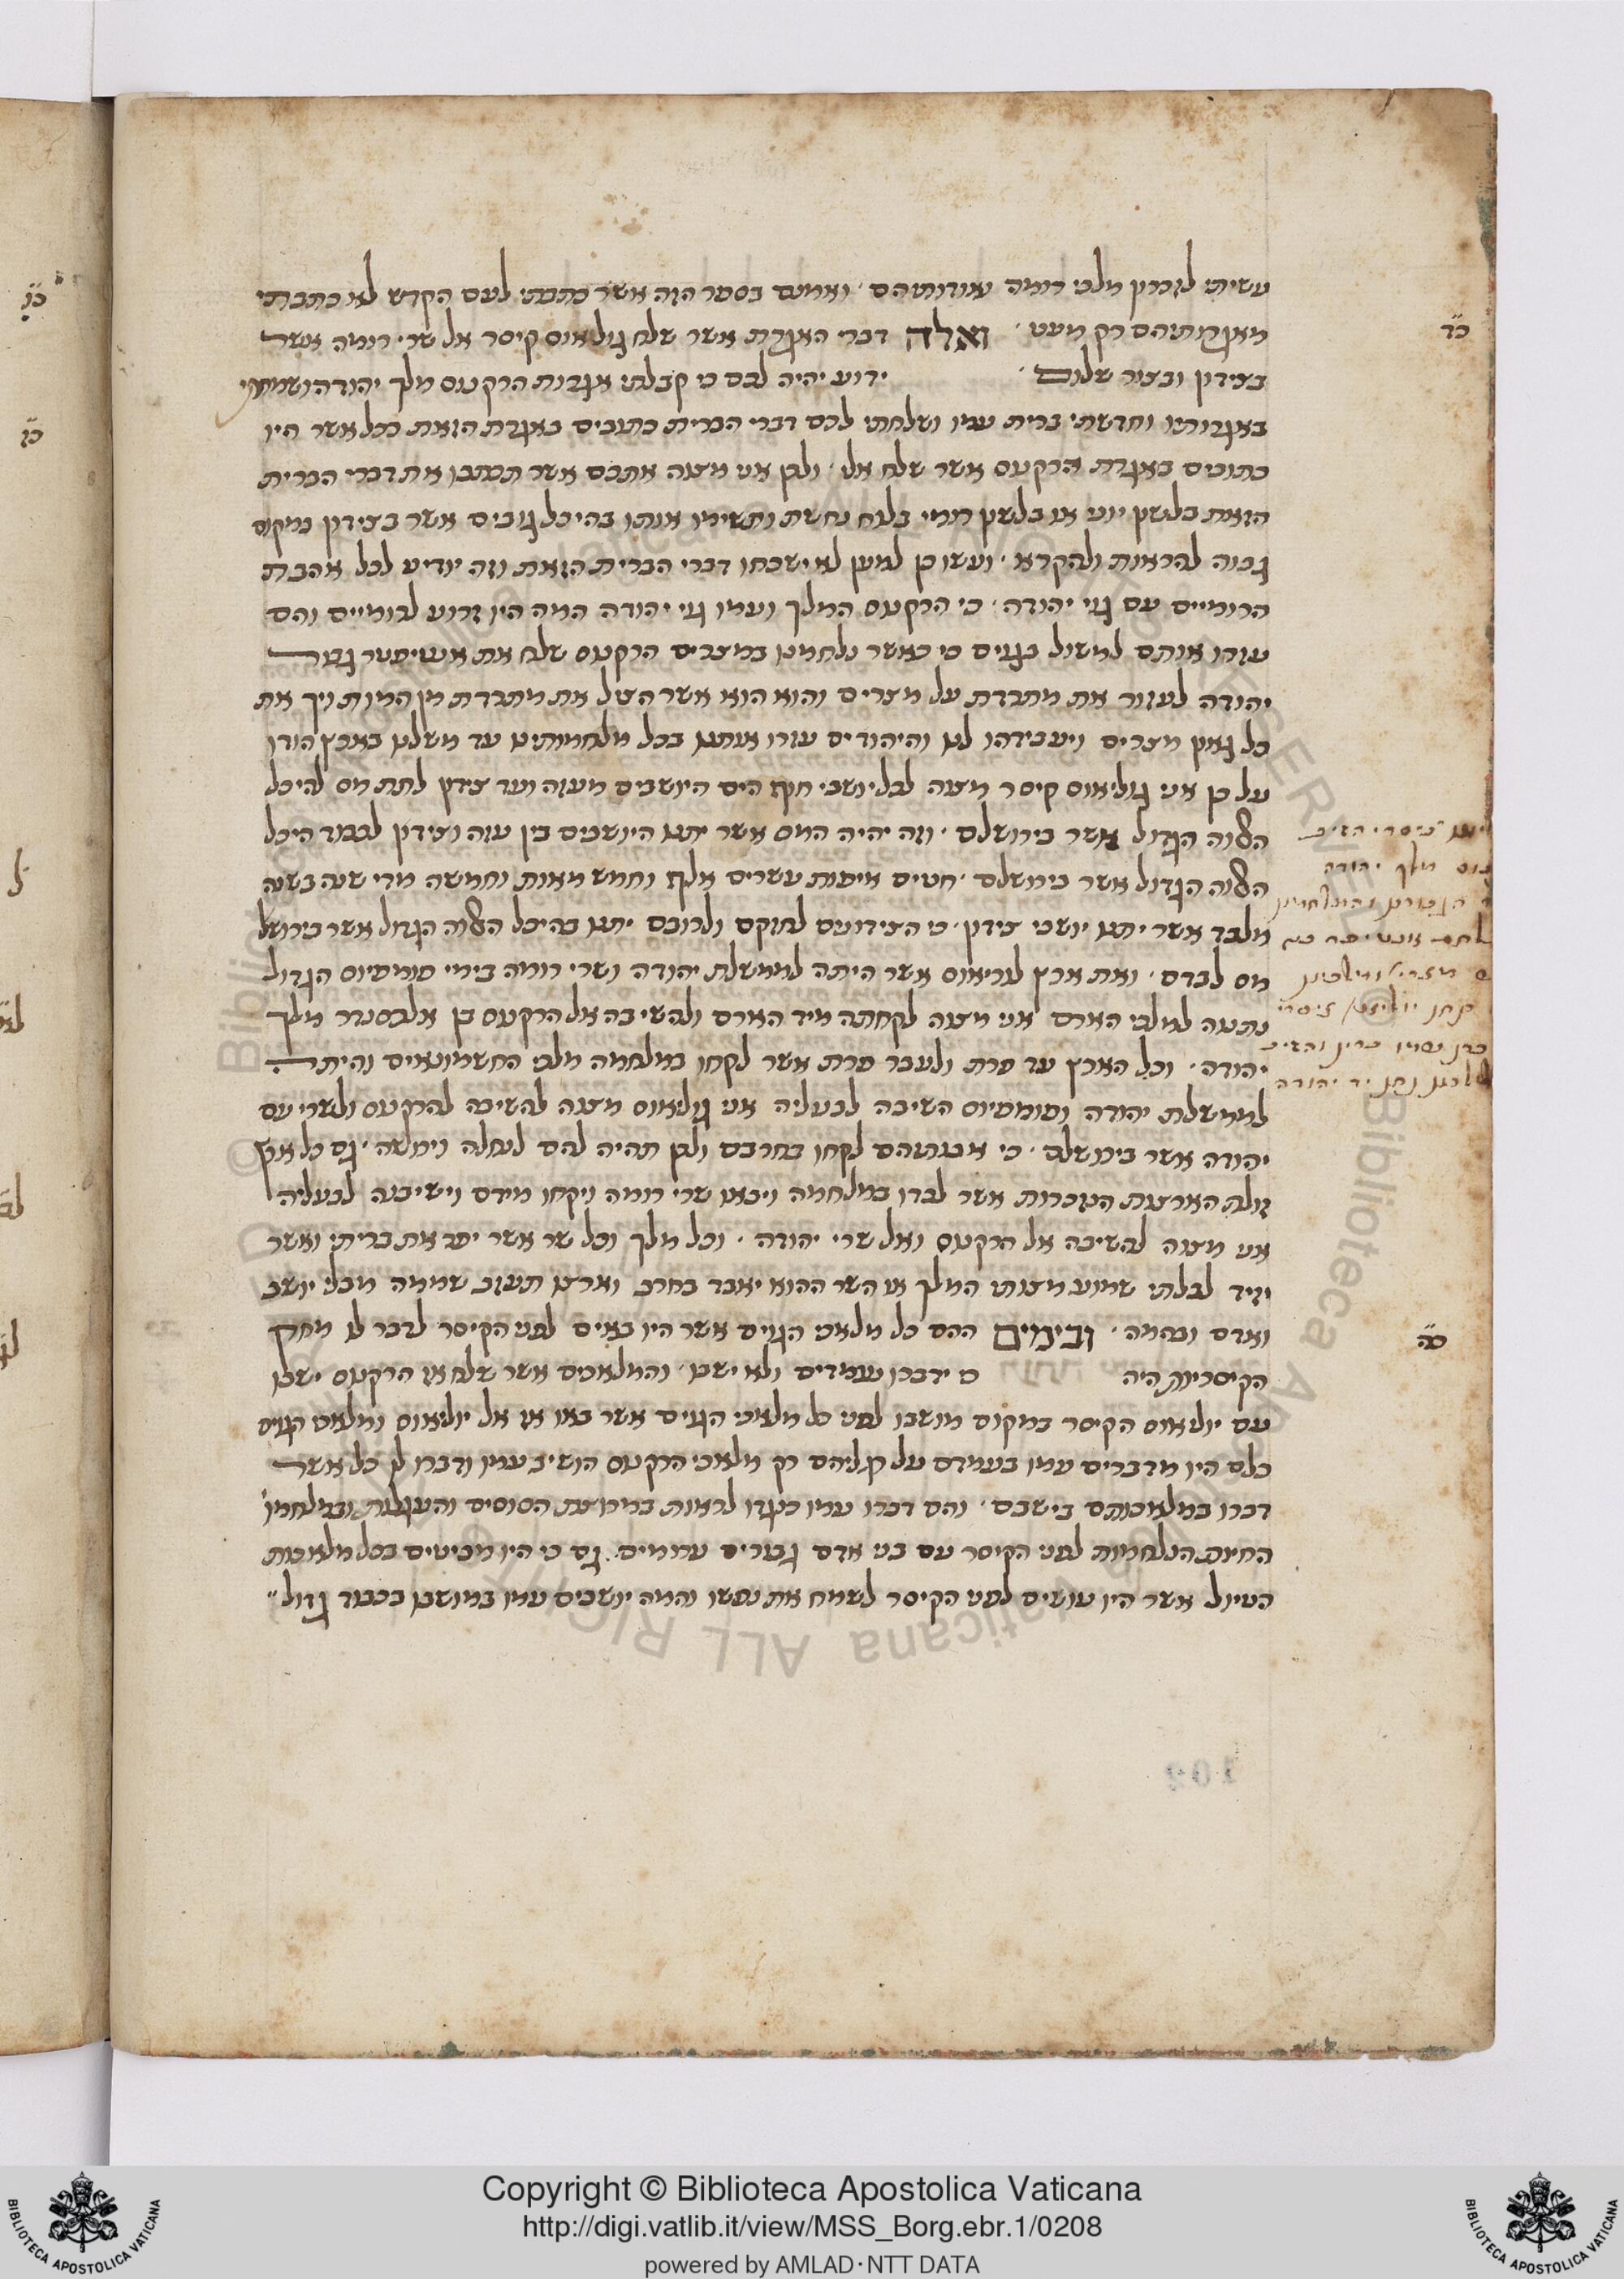 עשיתי לזכרון מלכי רומה אודותיהם ואמנם בספר הזה אשר כתבתי לעם הקדש לא כתבתי
מאגרותיהם רק מעט ואלה דברי האגרת אשר שלח גוליאוס קיסר אל שרי רומה אשר
בצידון ובצור שלום ידוע יהיה לכם כי קבלתי אגרות הרקנוס מלך יהודה ושמחתי
באגרותיו וחדשתי ברית עמו ושלחתי לכם דברי הברית כתובים באגרת הזאת ככל אשר היו
כתובים באגרת הרקנוס אשר שלח אלי ולכן אני מצוה אתכם אשר תכתבון את דברי הברית
הזאת בלשון יוני או בלשון רומי בלוח נחשת ותשימו אותו בהיכל גוביס אשר בצידון במקום
גבוה להראות ולהקרא ועשו כן למען לא ישכחו דברי הברית הזאת וזה יודיע לכל אהבת
הרומיים עם גוי יהודה כי הרקנוס המלך ועמו גוי יהודה המה היו זרוע לרומיים והם
עזרו אותם למשול בגוים כי כאשר נלחמנו במצרים הרקנוס שלח את אנטיפטר גבור
יהודה לעזור את מתרדת על מצרים והוא הוא אשר הציל את מתרדת מן המות ויך את
כל גאון מצרים ויעבידהו לנו והיהודים עזרו אותנו בכל מלחמותינו עד משלנו בארץ הודו
על כן אני גוליאוס קיסר מצוה לכל יושבי חוף הים היושבים מעזה ועד צידון לתת מס להיכל
האלוה הגדול אשר בירושלם וזה יהיה המס אשר יתנו היושבים בין עזה וצידון לכבוד היכל
האלוה הגדול אשר בירושלם חטים איפות עשרים אלף וחמש מאות וחמשה מדי שנה בשנה
מלבד אשר יתנו יושבי צידון כי הצידונים לחוקם ולרובם יתנו בהיכל האלוה הגדול אשר בירושל
מס לבדם ואת ארץ לוריאוס אשר היתה לממשלת יהודה ושרי רומה בימי פומפיוס הגדול
נתנוה למלכי הארם אני מצוה לקחתה מיד הארם ולהשיבה אל הרקנוס בן אלכסנדר מלך
יהודה וכל הארץ עד פרת ולעבר פרת אשר לקחו במלחמה מלכי החשמונאים והיתה
לממשלת יהודה ופומפיוס השיבה לבעליה אני גוליאוס מצוה להשיבה להרקנוס ולשרי עם
יהודה אשר בירושלם כי אבותיהם לקחו בחרבם ולכן תהיה להם לנחלה וירושה גם כל ארץ
זולת הארצות הנזכרות אשר לכדו במלחמה ויבאו שרי רומה ויקחו מידם וישיבוה לבעליה
אני מצוה להשיבה אל הרקנוס ואל שרי יהודה וכל מלך וכל שר אשר יפר את בריתי ואשר
יזיד לבלתי שמוע מצותי המלך או השר ההוא יאבד בחרב וארצו תעזב שממה מבלי יושב
ואדם ובהמה ובימים ההם כל מלאכי הגוים אשר היו באים לפני הקיסר לדבר לו מחק
הקיסריות היה כי ידברו עומדים ולא ישבו והמלאכים אשר שלח אז הרקנוס ישבו
עם יוליאוס הקיסר במקום מושבו לפני כל מלאכי הגוים אשר באו אז אל יוליאוס ומלאכי הגוים
כלם היו מדברים עמו בעמדם על רגליהם רק מלאכי הרקנוס הושיב עמו ודברו לו כל אשר
דברו במלאכותם בישבם והם דברו עמו כנגדו לראות במרוצת הסוסים והעגלות ובמלחמו
החיות הנלחמות לפני הקיסר עם בני אדם גבורים ערומים גם כי היו מביטים בכל מלאכות
הטיול אשר היו עושים לפני הקיסר לשמח את נפשו והמה יושבים עמו במושבו בכבוד גדול
כד
כה
מלך יהודה
Copyright © Biblioteca Apostolica Vaticana
http://digi.vatlib.it/view/MSS_Borg.ebr.1/0208
powered by AMLAD·NTT DATA
BIBLIOTECA APOSTOLICA VATICANA
BIBLIOTECA APOSTOLICA VATICANA